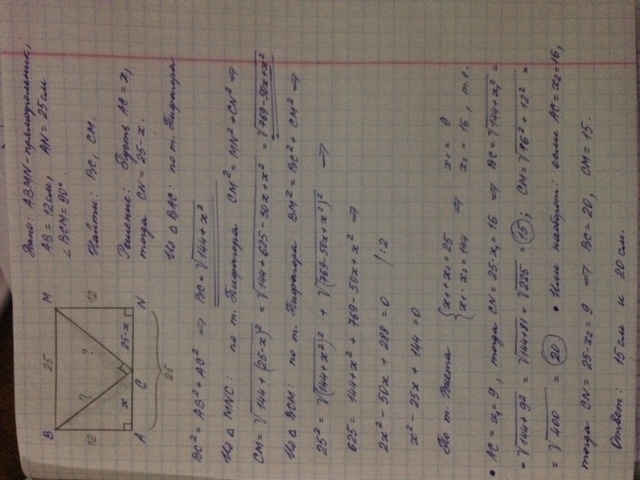 Дано: ABMN-прямоугольник,
AB = 12см, AN = 25см
∠BCM = 90°
Найти: BC, CM.
Решение: Пусть AC = x,
тогда CN = 25-x.
Из △ BAC: по т. Пифагора
B 25 M
12 ? ? 12
x 25-x
A C N
25
BC² = AB² + AC² ⇒ BC = √144 + x²
Из △ MNC: по т. Пифагора CM² = MN² + CN² ⇒
CM = √144 + (25-x)² = √144 + 625 - 50x + x² = √769 - 50x + x²
Из △ BCM: по т. Пифагора BM² = BC² + CM² ⇒
25² = √(144 + x²)² + √(769 - 50x + x²)² ⇒
625 = 144 + x² + 769 - 50x + x² ⇒
2x² - 50x + 288 = 0 /:2
x² - 25x + 144 = 0
По т. Виета { x₁ + x₂ = 25 x₁ · x₂ = 144 ⇒ x₁ = 9 x₂ = 16, т.е.
• AC = x₁ = 9, тогда CN = 25 - x₁ = 16 ⇒ BC = √144 + x₁² =
= √144 + 9² = √144 + 81 = √225 = 15; CM = √16² + 12² =
= √400 = 20 • Или наоборот: если AC = x₂ = 16,
тогда CN = 25 - x₂ = 9 ⇒ BC = 20, CM = 15.
Ответ: 15 см и 20 см.